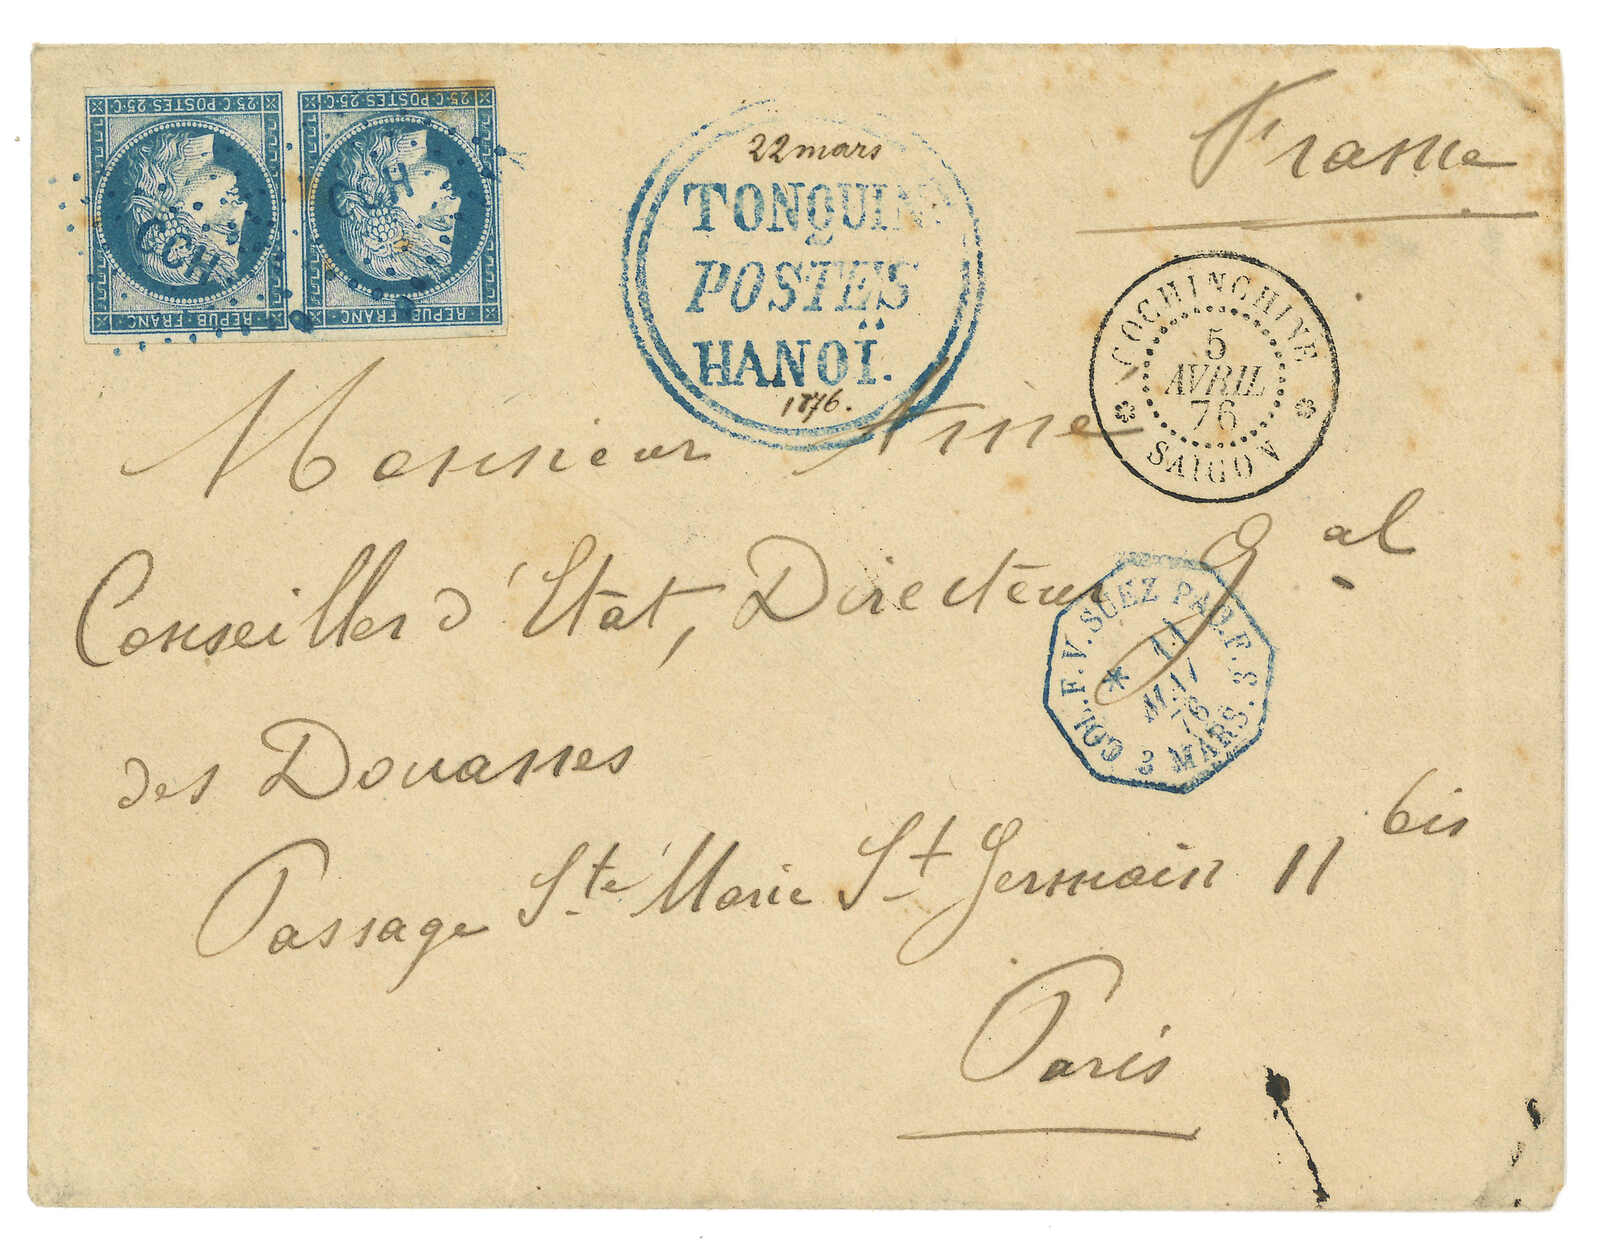 25·C·POSTES·25·C
25·C·POSTES·25·C
CCH
CCH
REPUB·FRANC
REPUB·FRANC
22 mars
TONQUIN
POSTES
HANOÏ.
1876.
France
COCHINCHINE
5
AVRIL
76
SAIGON
Monsieur Amé
Conseiller d'Etat, Directeur Gal
des Douanes
COL.F.V.SUEZ PAQ.F.
11
MAI
76
MARS.
Passage Ste Marie St Germain 11 bis
Paris